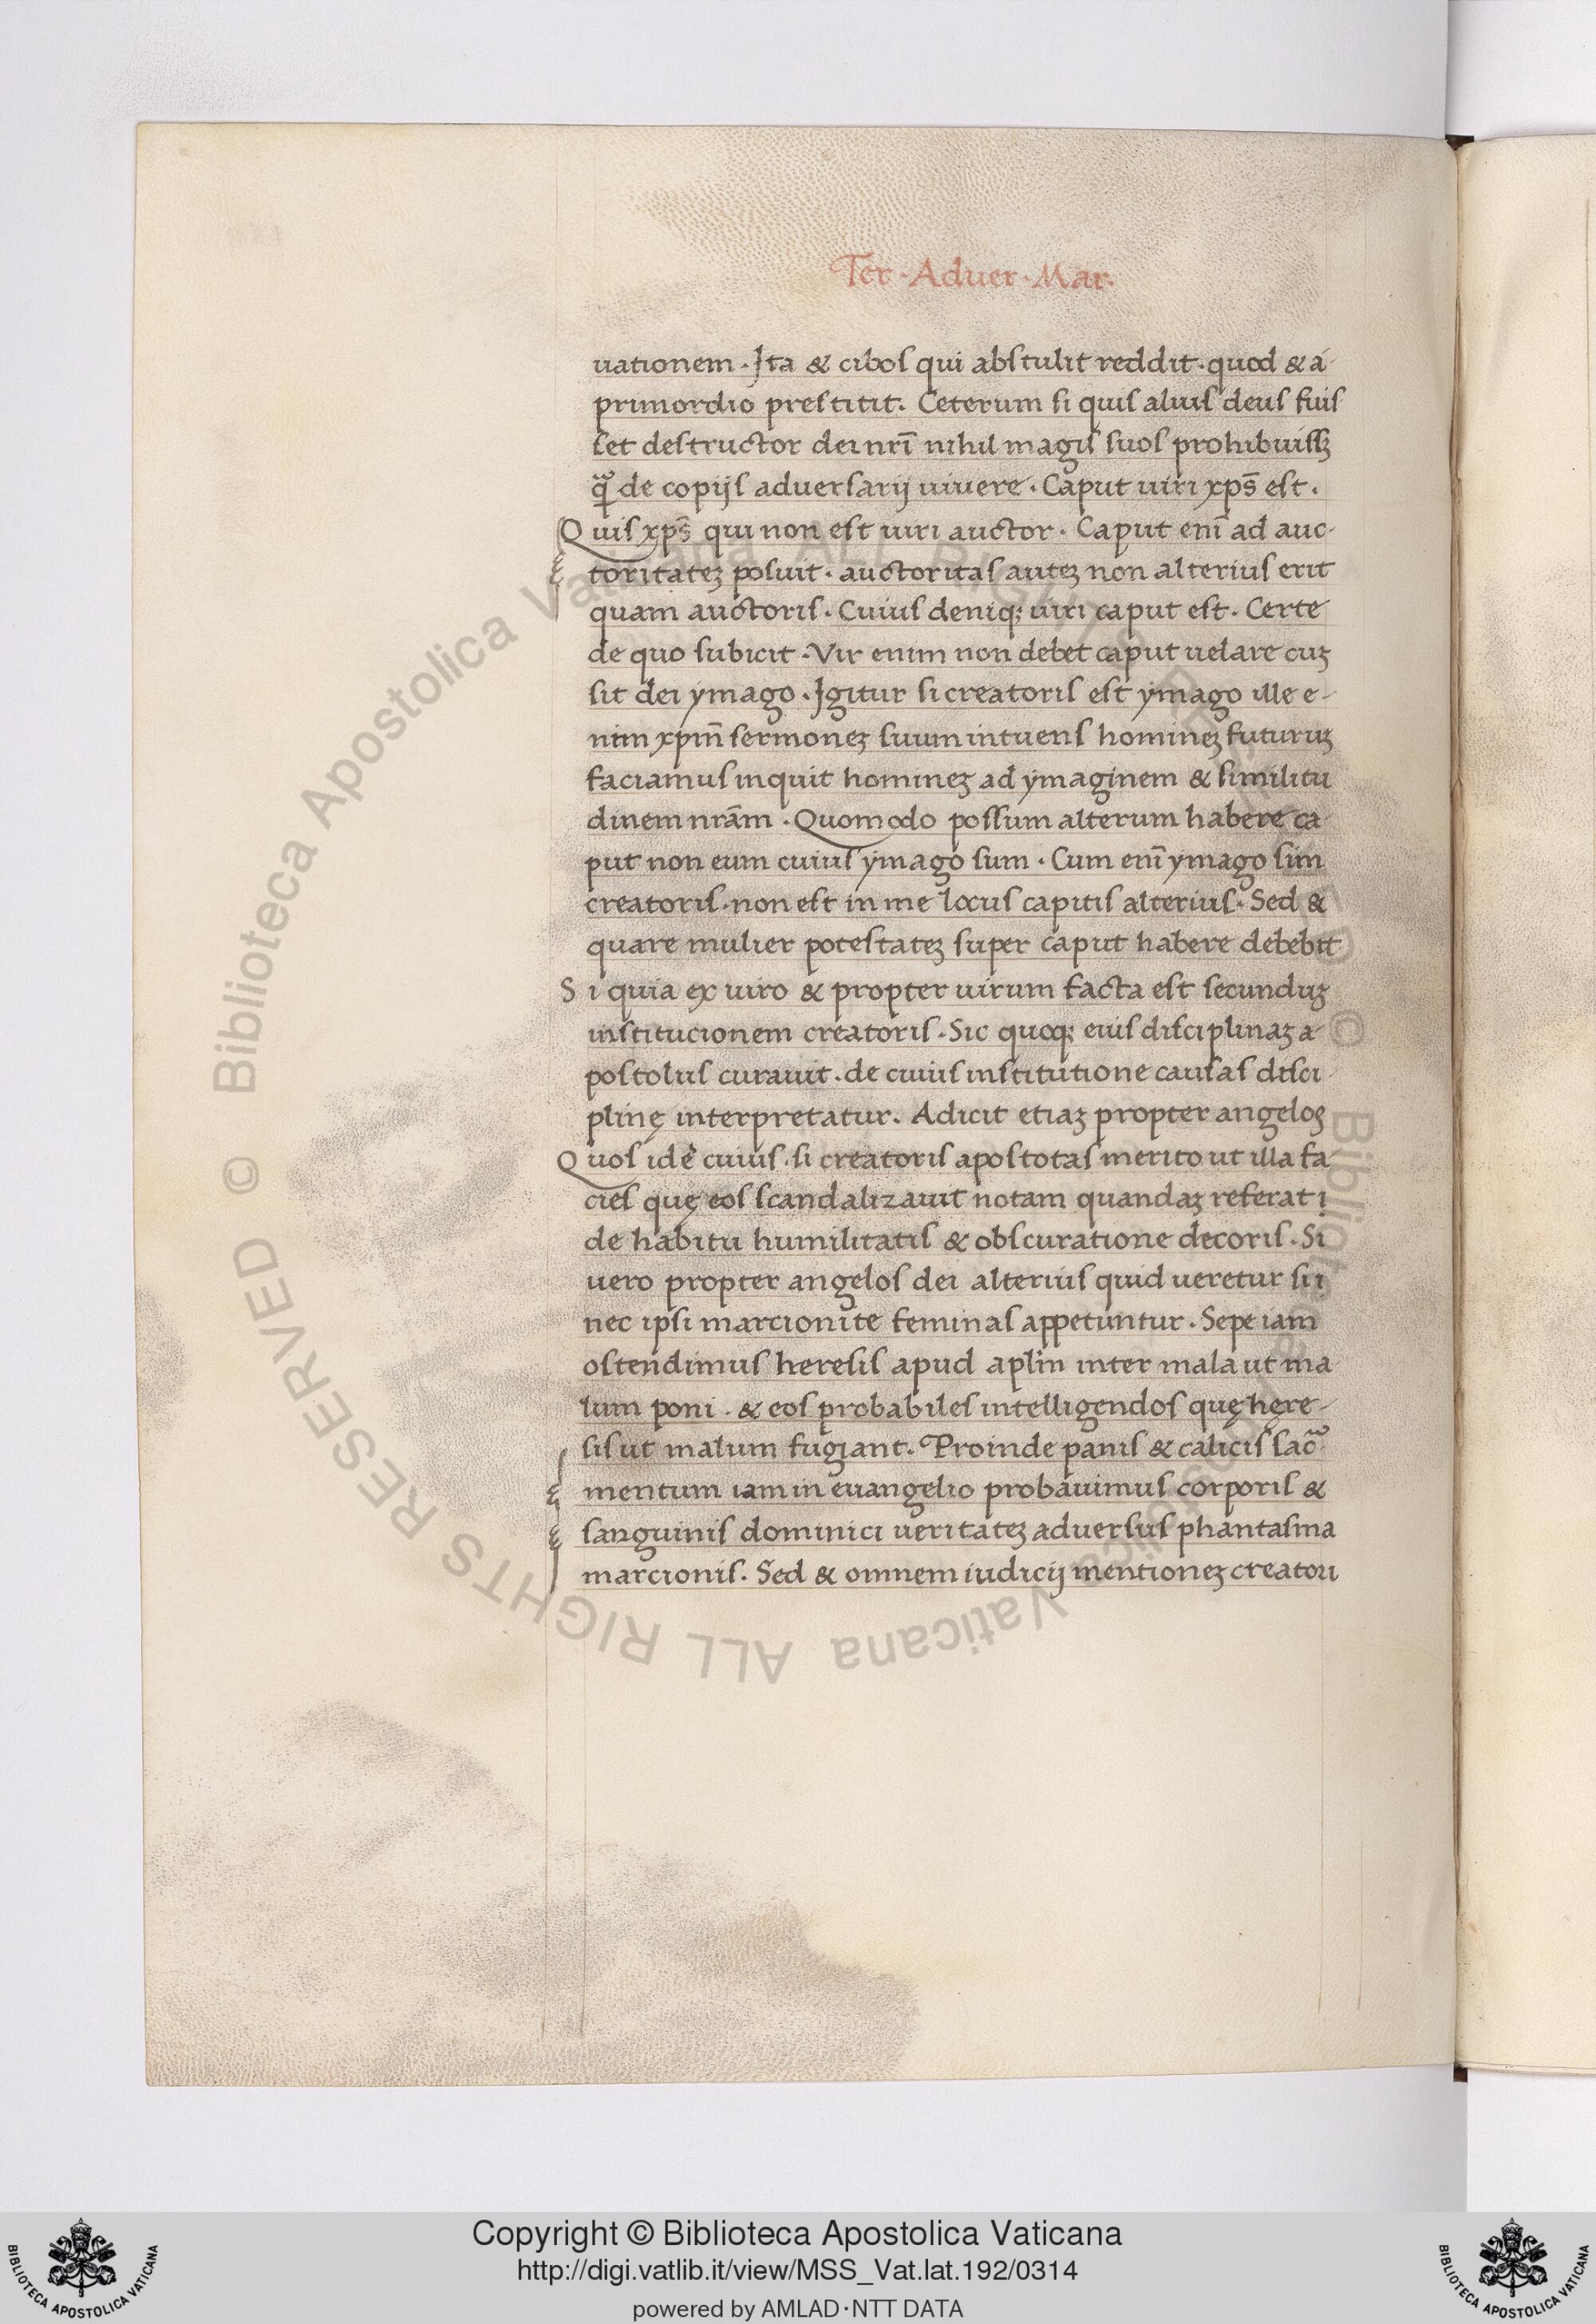 Ter · Aduer · Mar.
uationem · Ita & cibos qui abstulit reddit · quod & a-
primordio prestitit. Ceterum si quis alius deus fuis
set destructor dei nr̄i nihil magis suos prohibuissꝫ
q̃ de copijs aduersarij uiuere · Caput uiri xp̄s est .
Quis xp̄s qui non est uiri auctor · Caput enī ad auc-
toritatēꝫ posuit · auctoritas autēꝫ non alterius erit
quam auctoris . Cuius deniqꝫ uiri caput est . Certe
de quo subicit . Vir enim non debet caput uelare cuꝫ
sit dei ymago . Igitur si creatoris est ymago ille e-
nim xpm̄ sermoneꝫ suum intuens homineꝫ futuruꝫ
faciamus inquit homineꝫ ad ymaginem & similitu
dinem nrām . Quomodo possum alterum habere ca-
put non eum cuius ymago sum . Cum enī ymago sim
creatoris . non est in me locus capitis alterius . Sed &
quare mulier potestateꝫ super caput habere debebit
Si quia ex uiro & propter uirum facta est secunduꝫ
institucionem creatoris . Sic quoqꝫ eius disciplinaꝫ a-
postolus curauit . de cuius institutione causas disci-
plinę interpretatur . Adicit etiaꝫ propter angelos
Quos idē cuius . si creatoris apostotas merito ut illa fa
cies quę eos scandalizauit notam quandaꝫ referat i
de habitu humilitatis & obscuratione decoris . Si
uero propter angelos dei alterius quid ueretur si i
nec ipsi marcionite feminas appetuntur . Sepe iam
ostendimus heresis apud aplm̄ inter mala ut ma
lum poni . & eos probabiles intelligendos quę here-
sis ut malum fugiant . Proinde panis & calicis sac̃
mentum iam in euangelio probauimus corporis &
sanguinis dominici ueritateꝫ aduersus phantasma
marcionis . Sed & omnem iudicij mentioneꝫ creatori
Copyright © Biblioteca Apostolica Vaticana
http://digi.vatlib.it/view/MSS_Vat.lat.192/0314
powered by AMLAD·NTT DATA
BIBLIOTECA APOSTOLICA VATICANA
BIBLIOTECA APOSTOLICA VATICANA
© Biblioteca Apostolica Vaticana ALL RIGHTS RESERVED
© Biblioteca Apostolica Vaticana ALL RIGHTS RESERVED